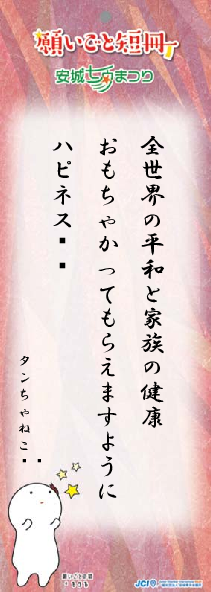 願いごと短冊
安城七夕まつり
全世界の平和と家族の健康
おもちゃかってもらえますように
ハピネス・・
タンちゃねこ・・
願いごと短冊
JCI